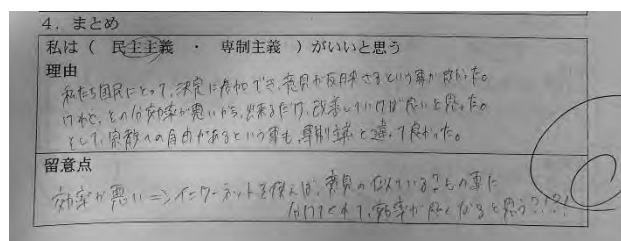 4．まとめ
私は（ 民主主義 ・ 専制主義 ）がいいと思う
理由
私たち国民にとって、決定に参加でき、意見が反映されるという事が良かった。
けれど、その分効率が悪いから、出来るだけ、改善していけば良いと思った。
そして、宗教への自由があるという事も、専制主義と違って良かった。
留意点
効率が悪い⇒インターネットを使えば、意見の似ている？もの事に
分けてくれて、効率が良くなると思う?!?!